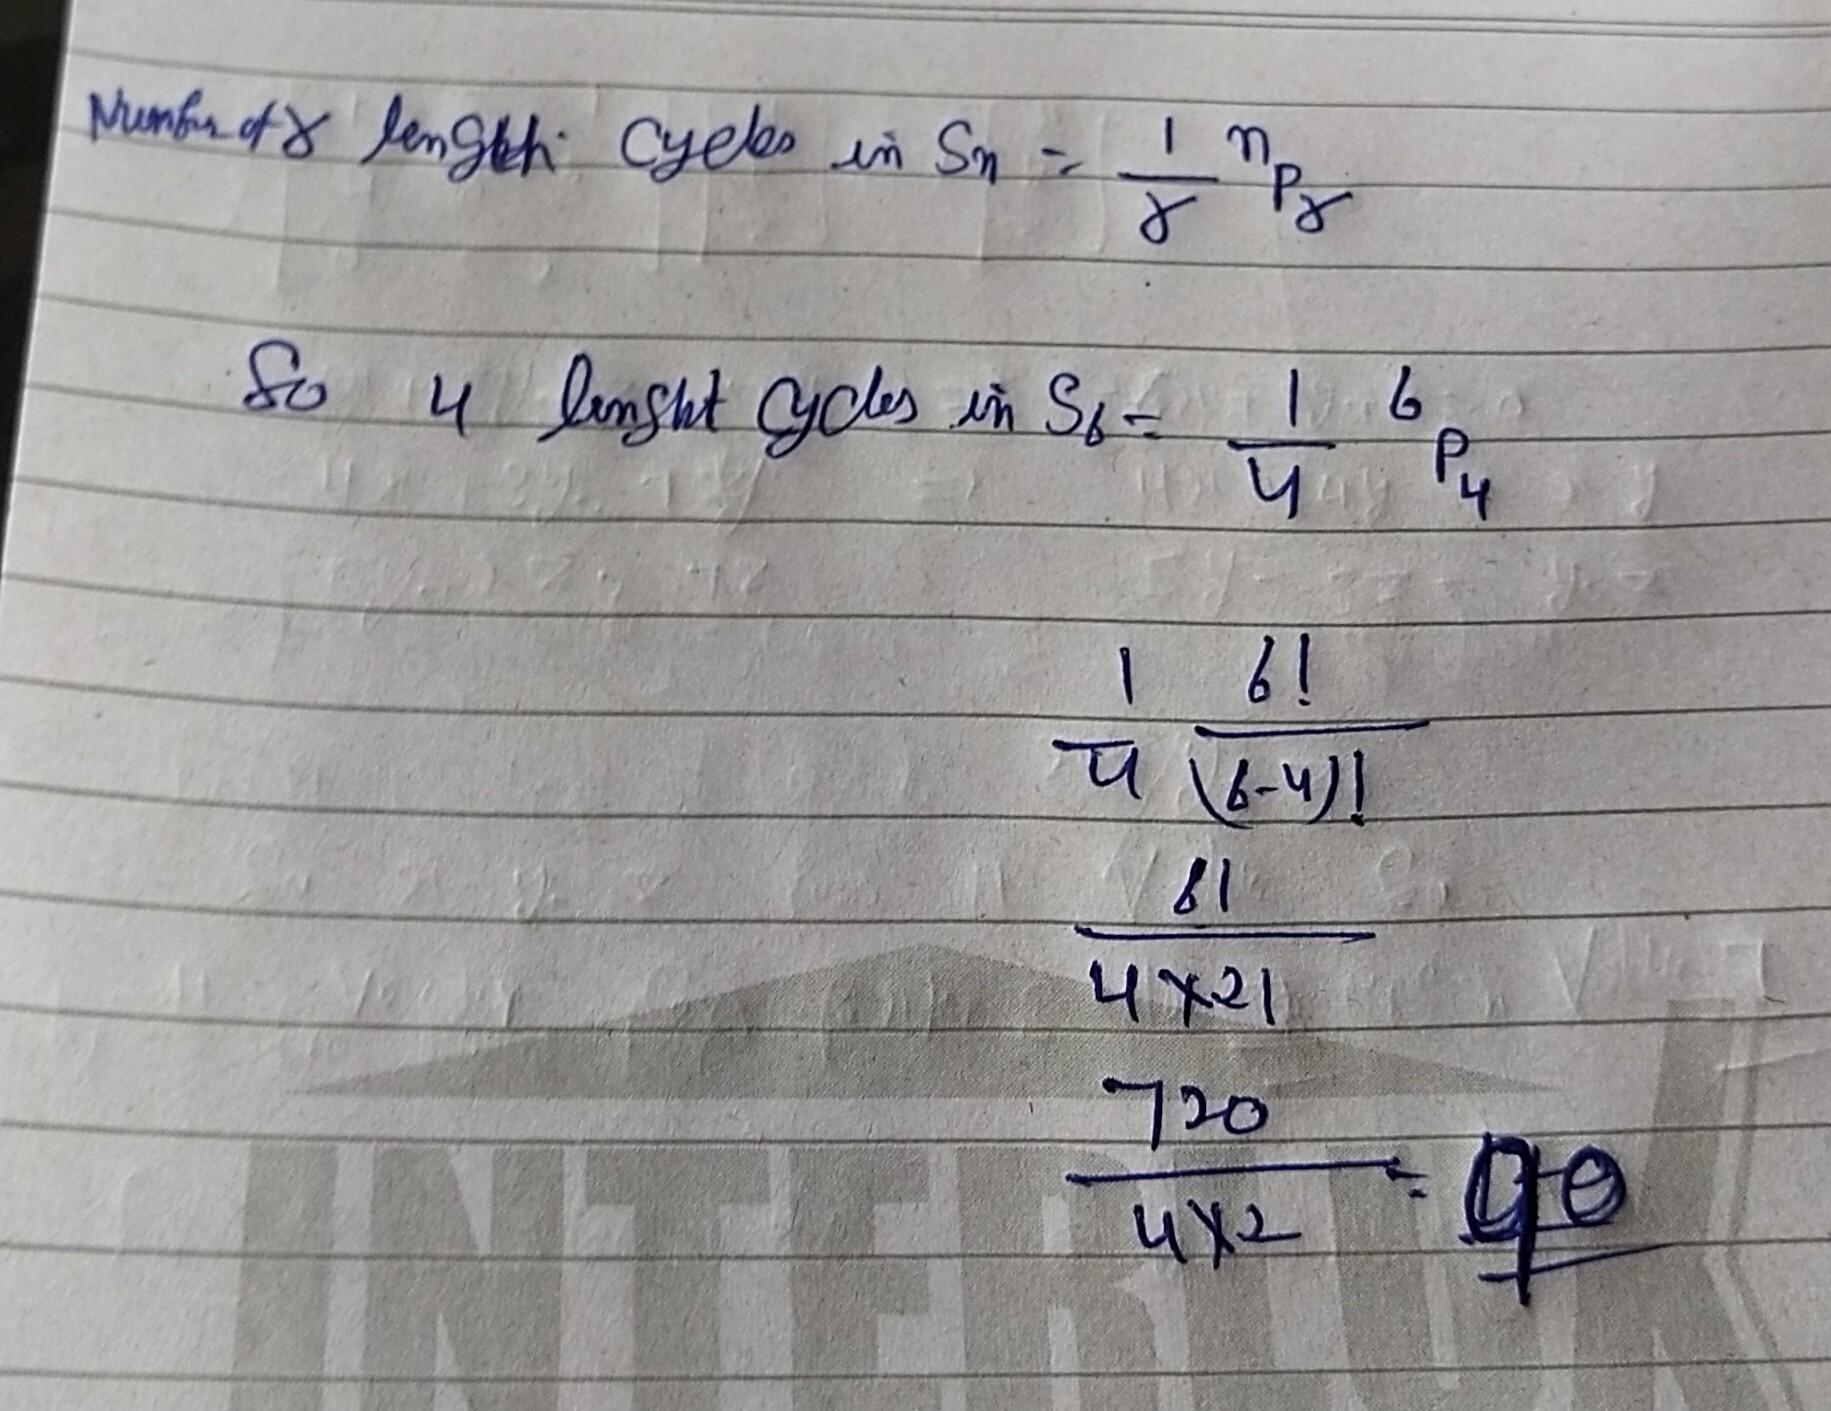 Number of r length cycles in Sn = 1/r nPr
So 4 lenght cycles in S6 = 1/4 6P4
1/4 6!/(6-4)!
6!/4×2!
720/4×2 = 90
INTERLUX